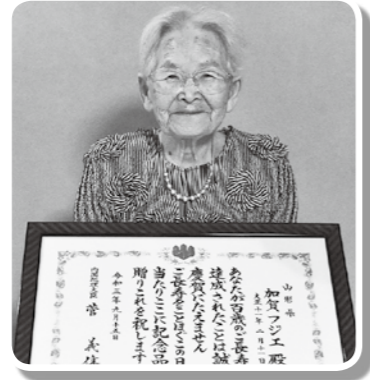 山形県
加賀フジエ 殿
大正十一年二月十一日
あなたが百歳のご長寿を
達成されたことは誠に
慶賀にたえません
ご長寿をことほぐこの日に
当たりここに記念品を
贈りこれを祝します
令和三年九月十五日
内閣総理大臣 菅 義偉